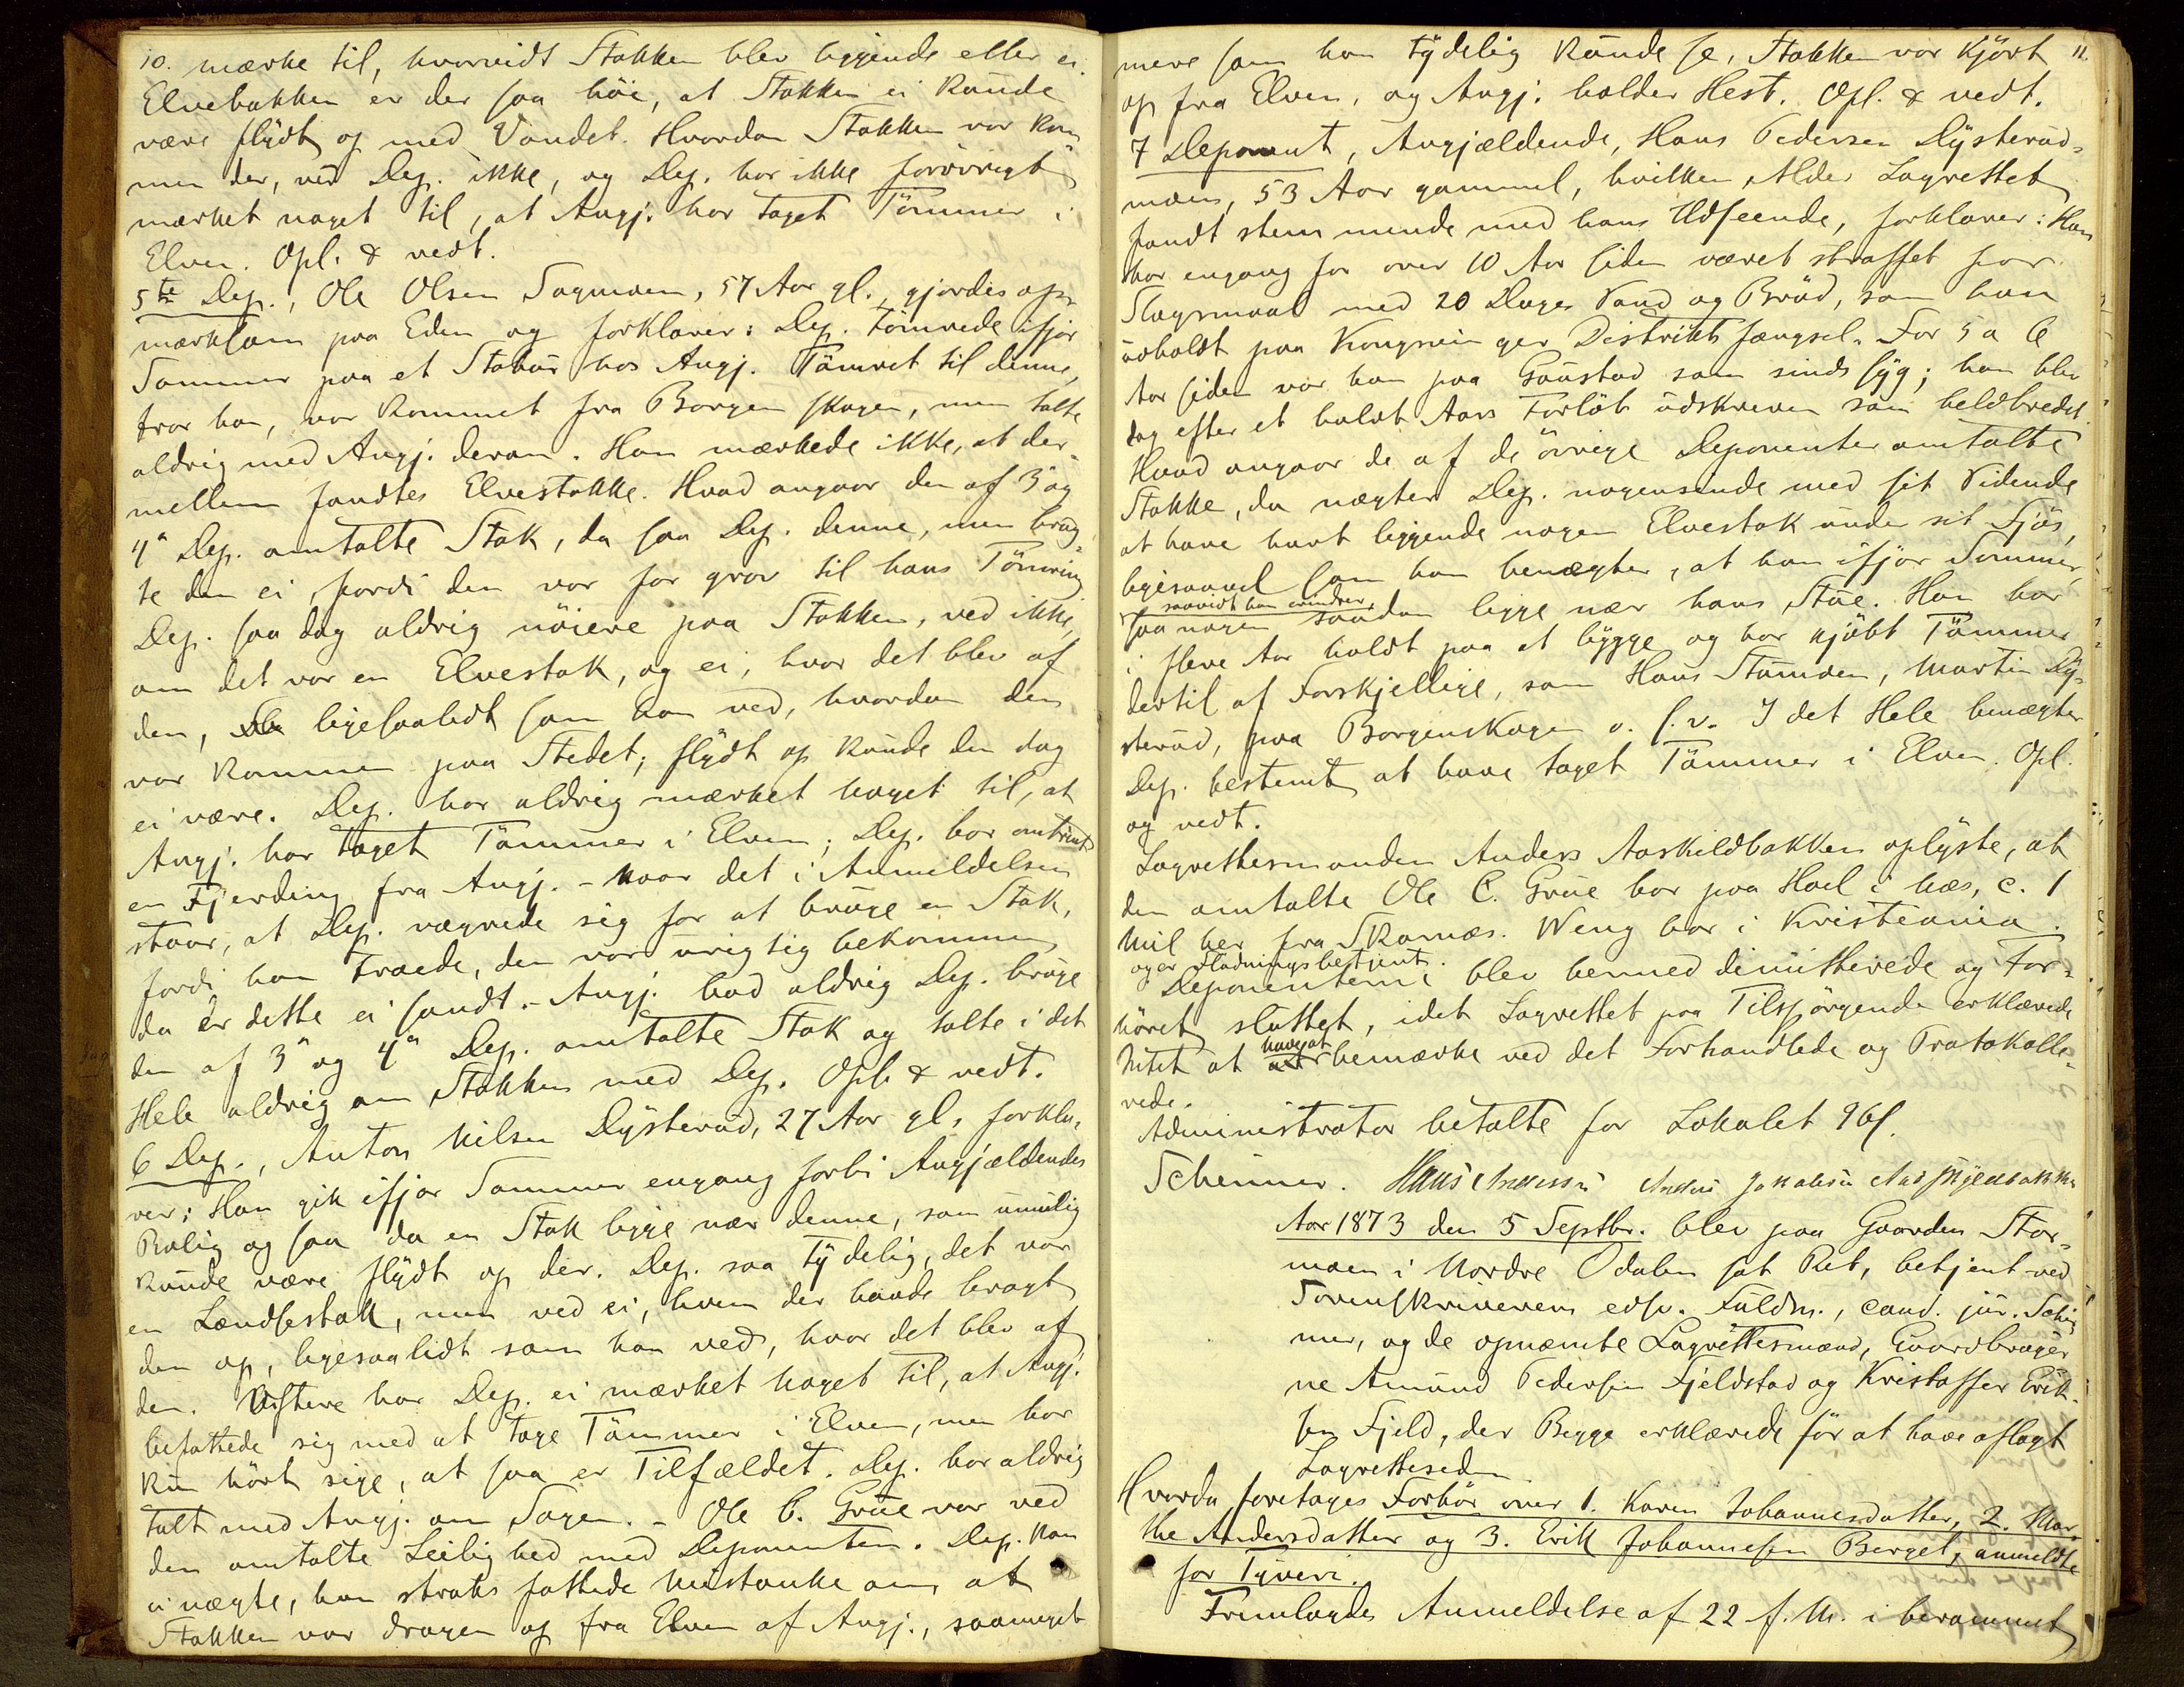 10. mærke til, hvorvidt Stokken blev liggende eller ei.
Elvebakken er der saa höi, at Stokken ei kunde
være flydt op med Vandet. Hvordan Stokken var kom
men der, ved Dep. ikke, og Dep. har ikke forövrigt
mærket noget til, at Angj. har taget Tömmer i
Elven. Opl. & vedt.
5te Dep., Ole Olsen Sagmoen, 57 Aar gl., gjordes op-
mærksom paa Eden og forklarer: Dep. tömrede ifjor
Sommer paa et Stabur hos Angj. Tömret til denne,
tror han, var kommet fra Borgenskogen, men talte
aldrig med Angj. derom. Han mærkede ikke, at der-
mellem fandtes Elvestokke. Hvad angaar den af 3 og
4de Dep. omtalte Stok, da saa Dep. denne, men brug-
te den ei, fordi den var for grov til hans Tömring
Dep. saa dog aldrig nöiere paa Stokken, ved ikke,
om det var en Elvestok, og ei, hvor det blev af
den, ligesaalidt som han ved, hvordan den
var kommen paa Stedet; flydt op kunde den dog
ei være. Dep. har aldrig mærket noget til, at
Angj. har taget Tömmer i Elven; Dep. bor omtrent
en Fjerding fra Angj. - Naar det i Anmeldelsen
staar, at Dep. vægrede sig for at bruge en Stok,
fordi han troede, den var urigtig bekommen
da er dette ei sandt. - Angj. bad aldrig Dep. bruge
den af 3de og 4de Dep. omtalte Stok og talte i det
Hele aldrig om Stokken med Dep. Opl. & vedt.
6 Dep., Anton Nilsen Dysterud, 27 Aar gl., forkla-
rer: Han gik ifjor Sommer engang forbi Angjældendes
Bolig og saa da en Stok ligge nær denne, som umulig
kunde være flydt op der. Dep. saa tydelig, det var
en Lændsestok, men ved ei, hvem der havde bragt
den op, ligesaalidt som han ved, hvor det blev af
den. Oftere har Dep. ei mærket noget til, at Angj.
befattede sig med at tage Tömmer i Elven, men har
kun hört sige, at saa er Tilfældet. Dep. har aldrig
talt med Angj. om Sagen. - Ole C. Grue var ved
den omtalte Leilighed med Deponenten. Dep. kan
ei nægte, han straks fattede Mistanke om, at
Stokken var dragen op fra Elven af Angj., saameget
mere som han tydelig kunde se, Stokken var kjört 11.
op fra Elven, og Angj. holder Hest. Opl. & vedt.
7 Deponent, Angjældende, Hans Pedersen Dysterud-
moen, 53 Aar gammel, hvilken Alder Lagrettet
fandt stemmende med hans Udseende, forklarer: Han
har engang for over 10 Aar siden været straffet for
Slagsmaal med 20 Dages Vand og Bröd, som han
udholdt paa Kongsvinger Distriktsfængsel. For 5 a 6
Aar siden var han paa Gaustad som sindssyg; han blev
dog efter et halvt Aars Forlöb udskreven som helbredet.
Hvad angaar de af de övrige Deponenter omtalte
Stokke, da nægter Dep. nogensinde med sit Vidende
at have havt liggende nogen Elvestok under sit Fjös,
ligesaavel som han benægter, at han ifjor Sommer,
saavidt han erindrer,
saa nogen saadan ligge nær hans Stue. Han har
i flere Aar holdt paa at bygge og har kjöbt Tömmer
dertil af Forskjellige, som Hans Stumoen, Martin Dy-
sterud, paa Borgenskogen o. s. v. I det Hele benægter
Dep. bestemt at have taget Tömmer i Elven. Opl.
og vedt.
Lagrettesmanden Anders Aaskildbakken oplyste, at
den omtalte Ole C. Grue bor paa Hoel i Næs, c. 1
Mil her fra Skarnæs. Weng bor i Kristiania
og er Flödningsbetjent.
Deponenterne blev hermed dimitterede og For-
höret sluttet, idet Lagrettet paa Tilspörgende erklærede
have at
Intet at bemærke ved det Forhandlede og Protokolle-
rede.
Administrator betalte for Lokalet 96 s.
Schenner. Hans Andersen Anders Jakobsen Aaskjelbakken
Aar 1873 den 5 Septbr. blev paa Gaarden Stor-
moen i Nordre Odalen sat Ret, betjent ved
Sorenskriverens edsv. Fuldm., cand. jur. Schen
ner, og de opnæmte Lagrettesmænd, Gaardbruger-
ne Amund Pedersen Fjeldstad og Kristoffer Erik-
sen Fjeld, der Begge erklærede för at have aflagt
Lagretteseden
Hvorda foretages Forhör over 1. Karen Johannesdatter, 2. Mar-
the Andersdatter og 3. Erik Johannesen Berget, anmeldte
for Tyveri.
Fremlagdes Anmeldelse af 22 f. M. i berammet